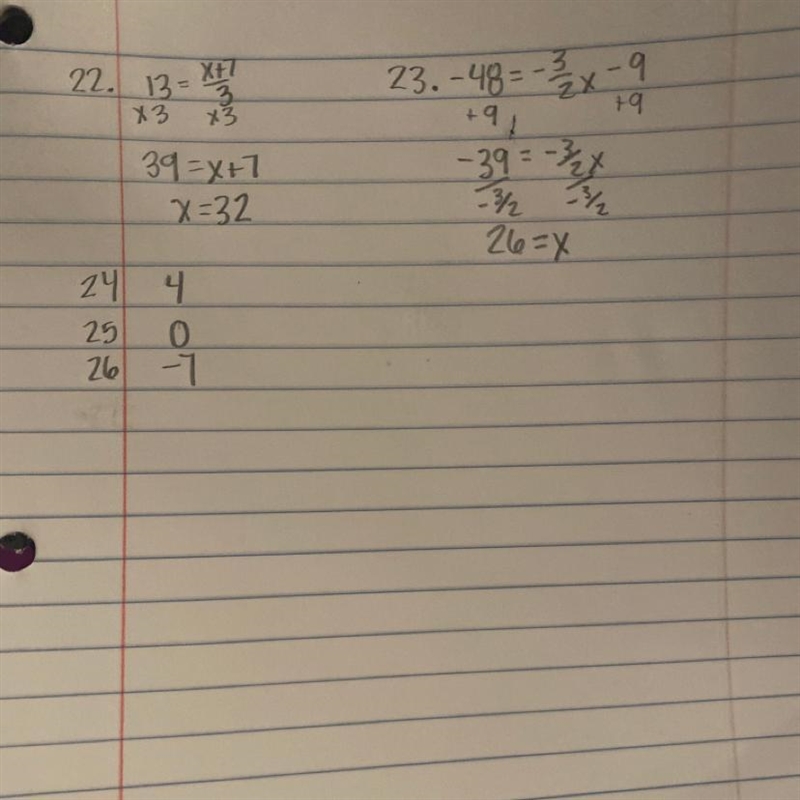 22. 13 = x+7/3
x3 x3
39 = x+7
x = 32
23. -48 = -3/2 x - 9
+9 +9
-39 = -3/2 x
-3/2 -3/2
26 = x
24 4
25 0
26 -7